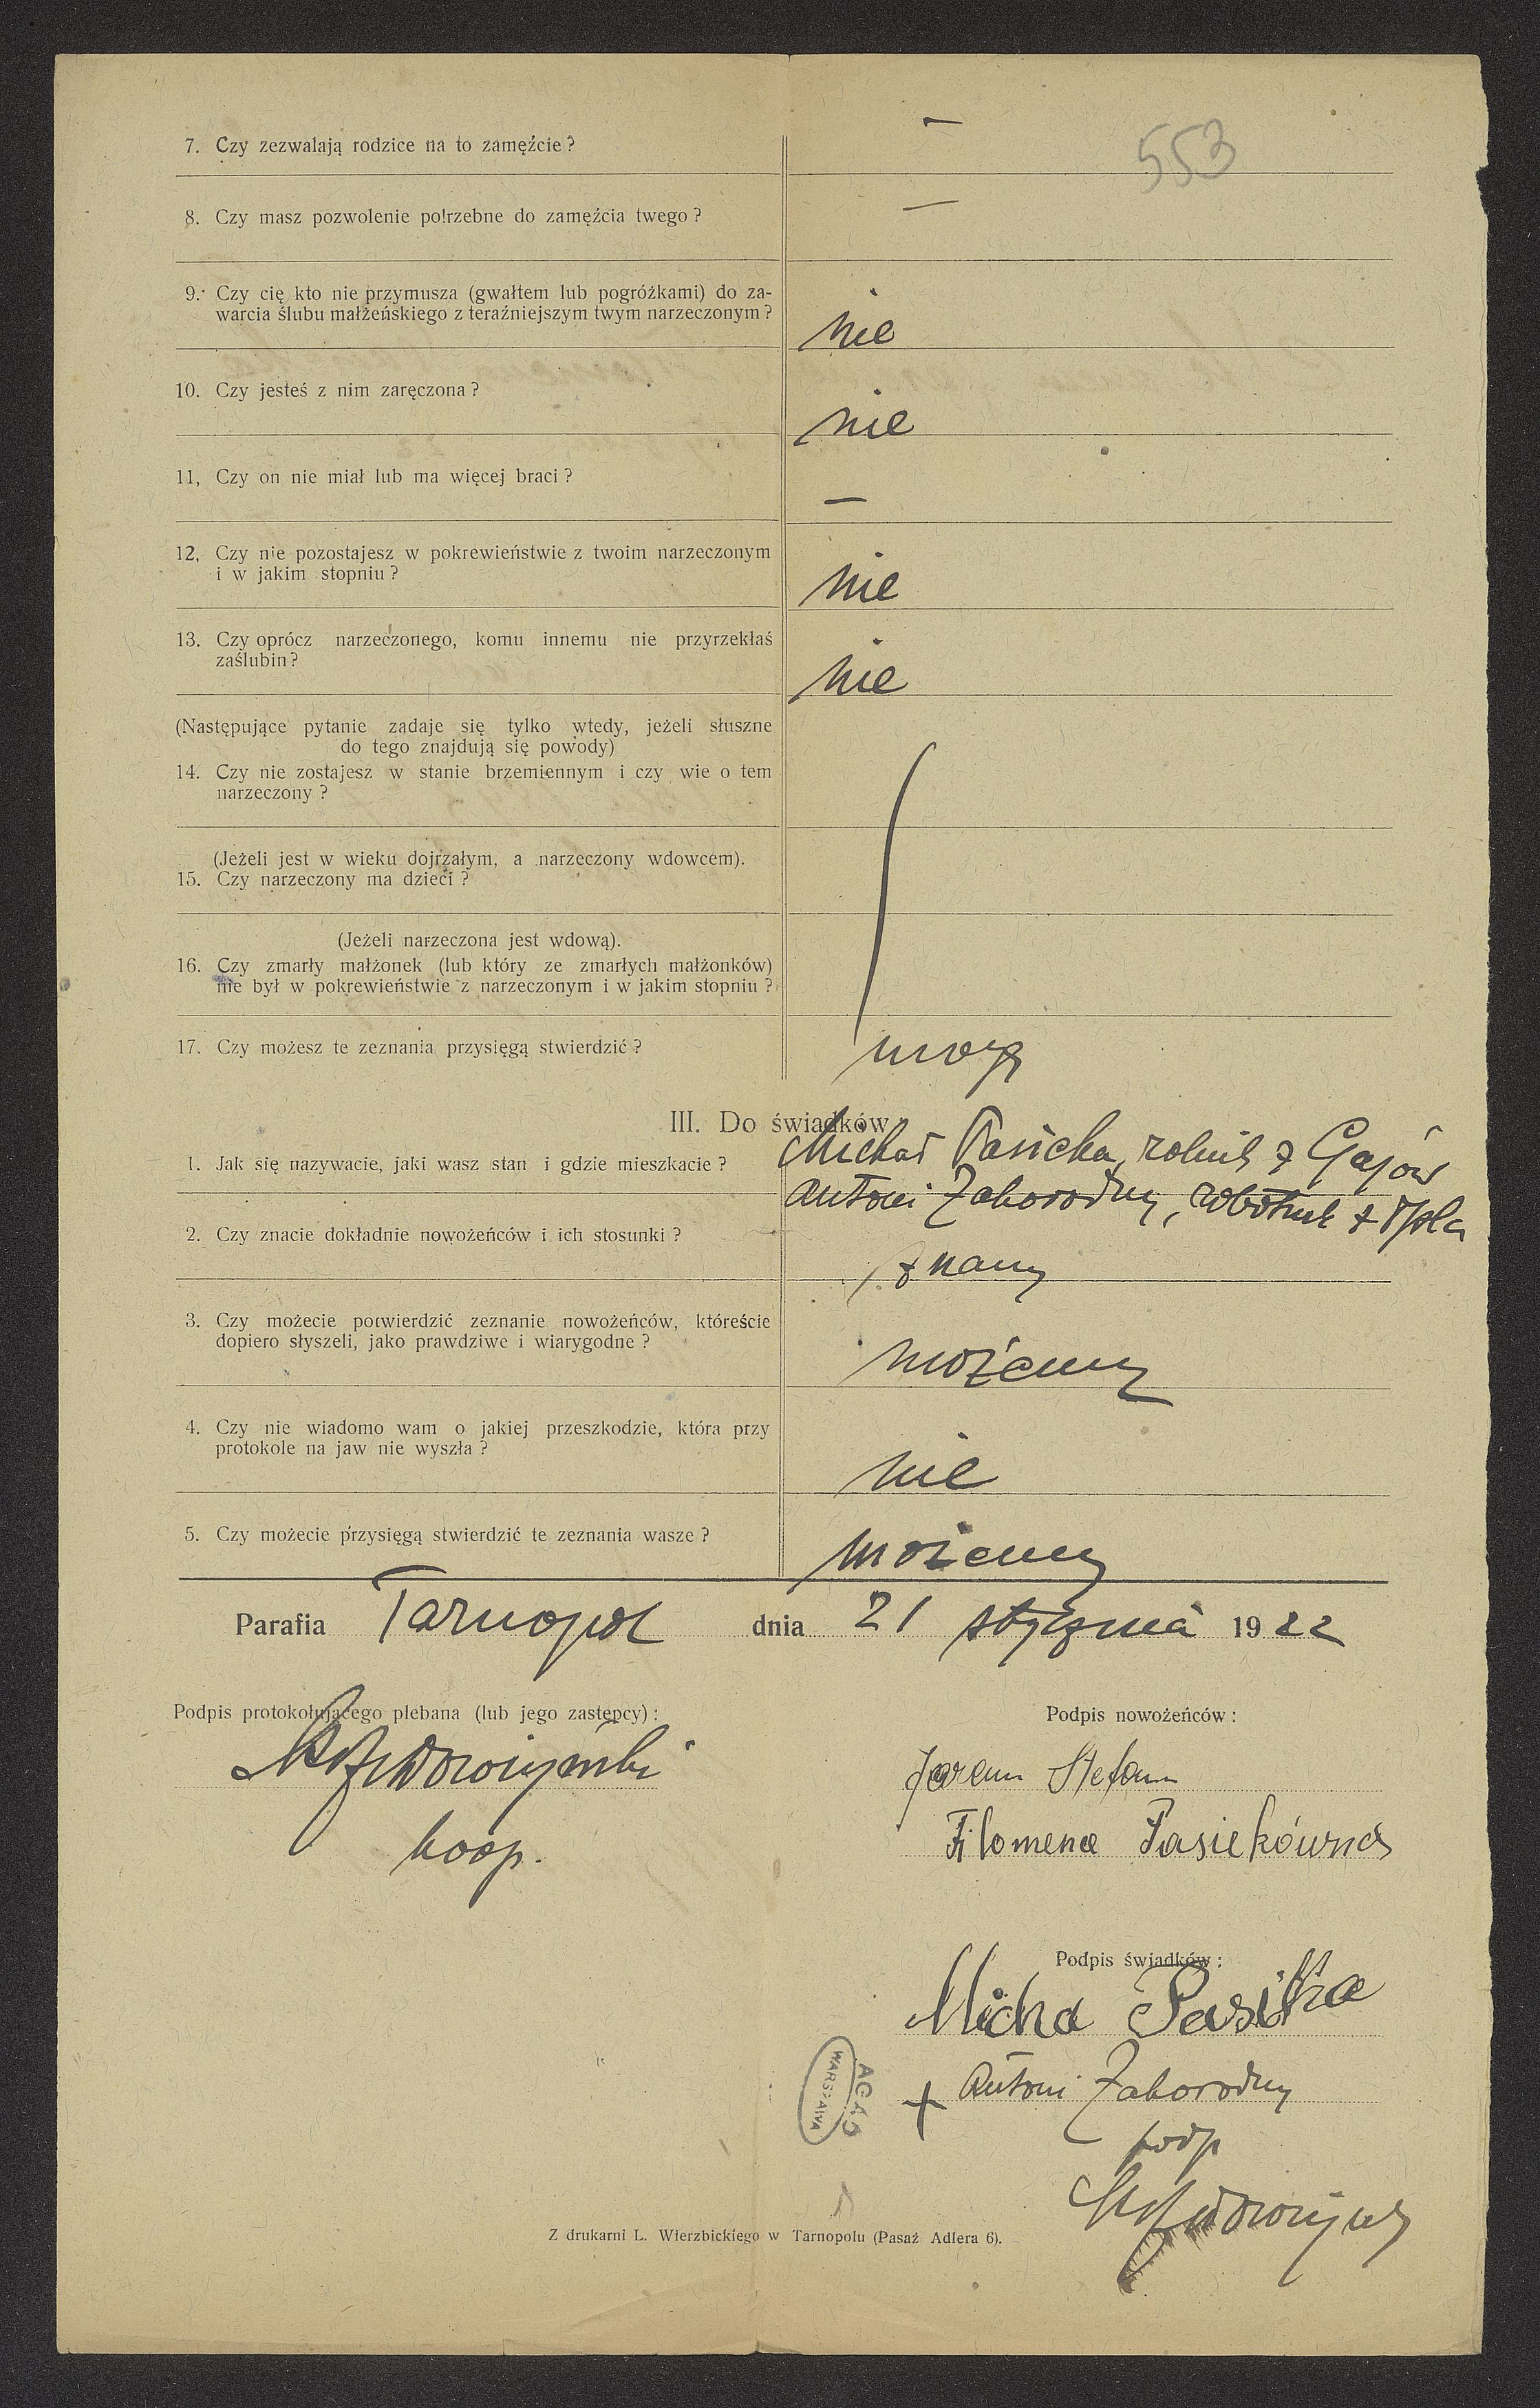 553
7. Czy zezwalają rodzice na to zamęźcie? —
8. Czy masz pozwolenie potrzebne do zamęźcia twego? —
9. Czy cię kto nie przymusza (gwałtem lub pogróżkami) do za-
warcia ślubu małżeńskiego z teraźniejszym twym narzeczonym? nie
10. Czy jesteś z nim zaręczona? nie
11, Czy on nie miał lub ma więcej braci? —
12, Czy nie pozostajesz w pokrewieństwie z twoim narzeczonym
i w jakim stopniu? nie
13. Czy oprócz narzeczonego, komu innemu nie przyrzekłaś
zaślubin? nie
(Następujące pytanie zadaje się tylko wtedy, jeżeli słuszne
do tego znajdują się powody)
14. Czy nie zostajesz w stanie brzemiennym i czy wie o tem
narzeczony?
(Jeżeli jest w wieku dojrzałym, a narzeczony wdowcem).
15. Czy narzeczony ma dzieci?
(Jeżeli narzeczona jest wdową).
16. Czy zmarły małżonek (lub który ze zmarłych małżonków)
nie był w pokrewieństwie z narzeczonym i w jakim stopniu?
17. Czy możesz te zeznania przysięgą stwierdzić? mogę
III. Do świadków
1. Jak się nazywacie, jaki wasz stan i gdzie mieszkacie? Michał Pasieka, rolnik z Gajów
Antoni Zahorodny, robotnik z Tpla
2. Czy znacie dokładnie nowożeńców i ich stosunki? znamy
3. Czy możecie potwierdzić zeznanie nowożeńców, któreście
dopiero słyszeli, jako prawdziwe i wiarygodne? możemy
4. Czy nie wiadomo wam o jakiej przeszkodzie, która przy
protokole na jaw nie wyszła? nie
5. Czy możecie przysięgą stwierdzić te zeznania wasze? możemy
Parafia Tarnopol dnia 21 stycznia 1922
Podpis protokołującego plebana (lub jego zastępcy):
koop.
Podpis nowożeńców:
Stefan
Filomena Pasiekówna
Podpis świadków:
Micha Pasika
+ Antoni Zahorodny
podp
AGAD
WARSZAWA
Z drukarni L. Wierzbickiego w Tarnopolu (Pasaż Adlera 6).